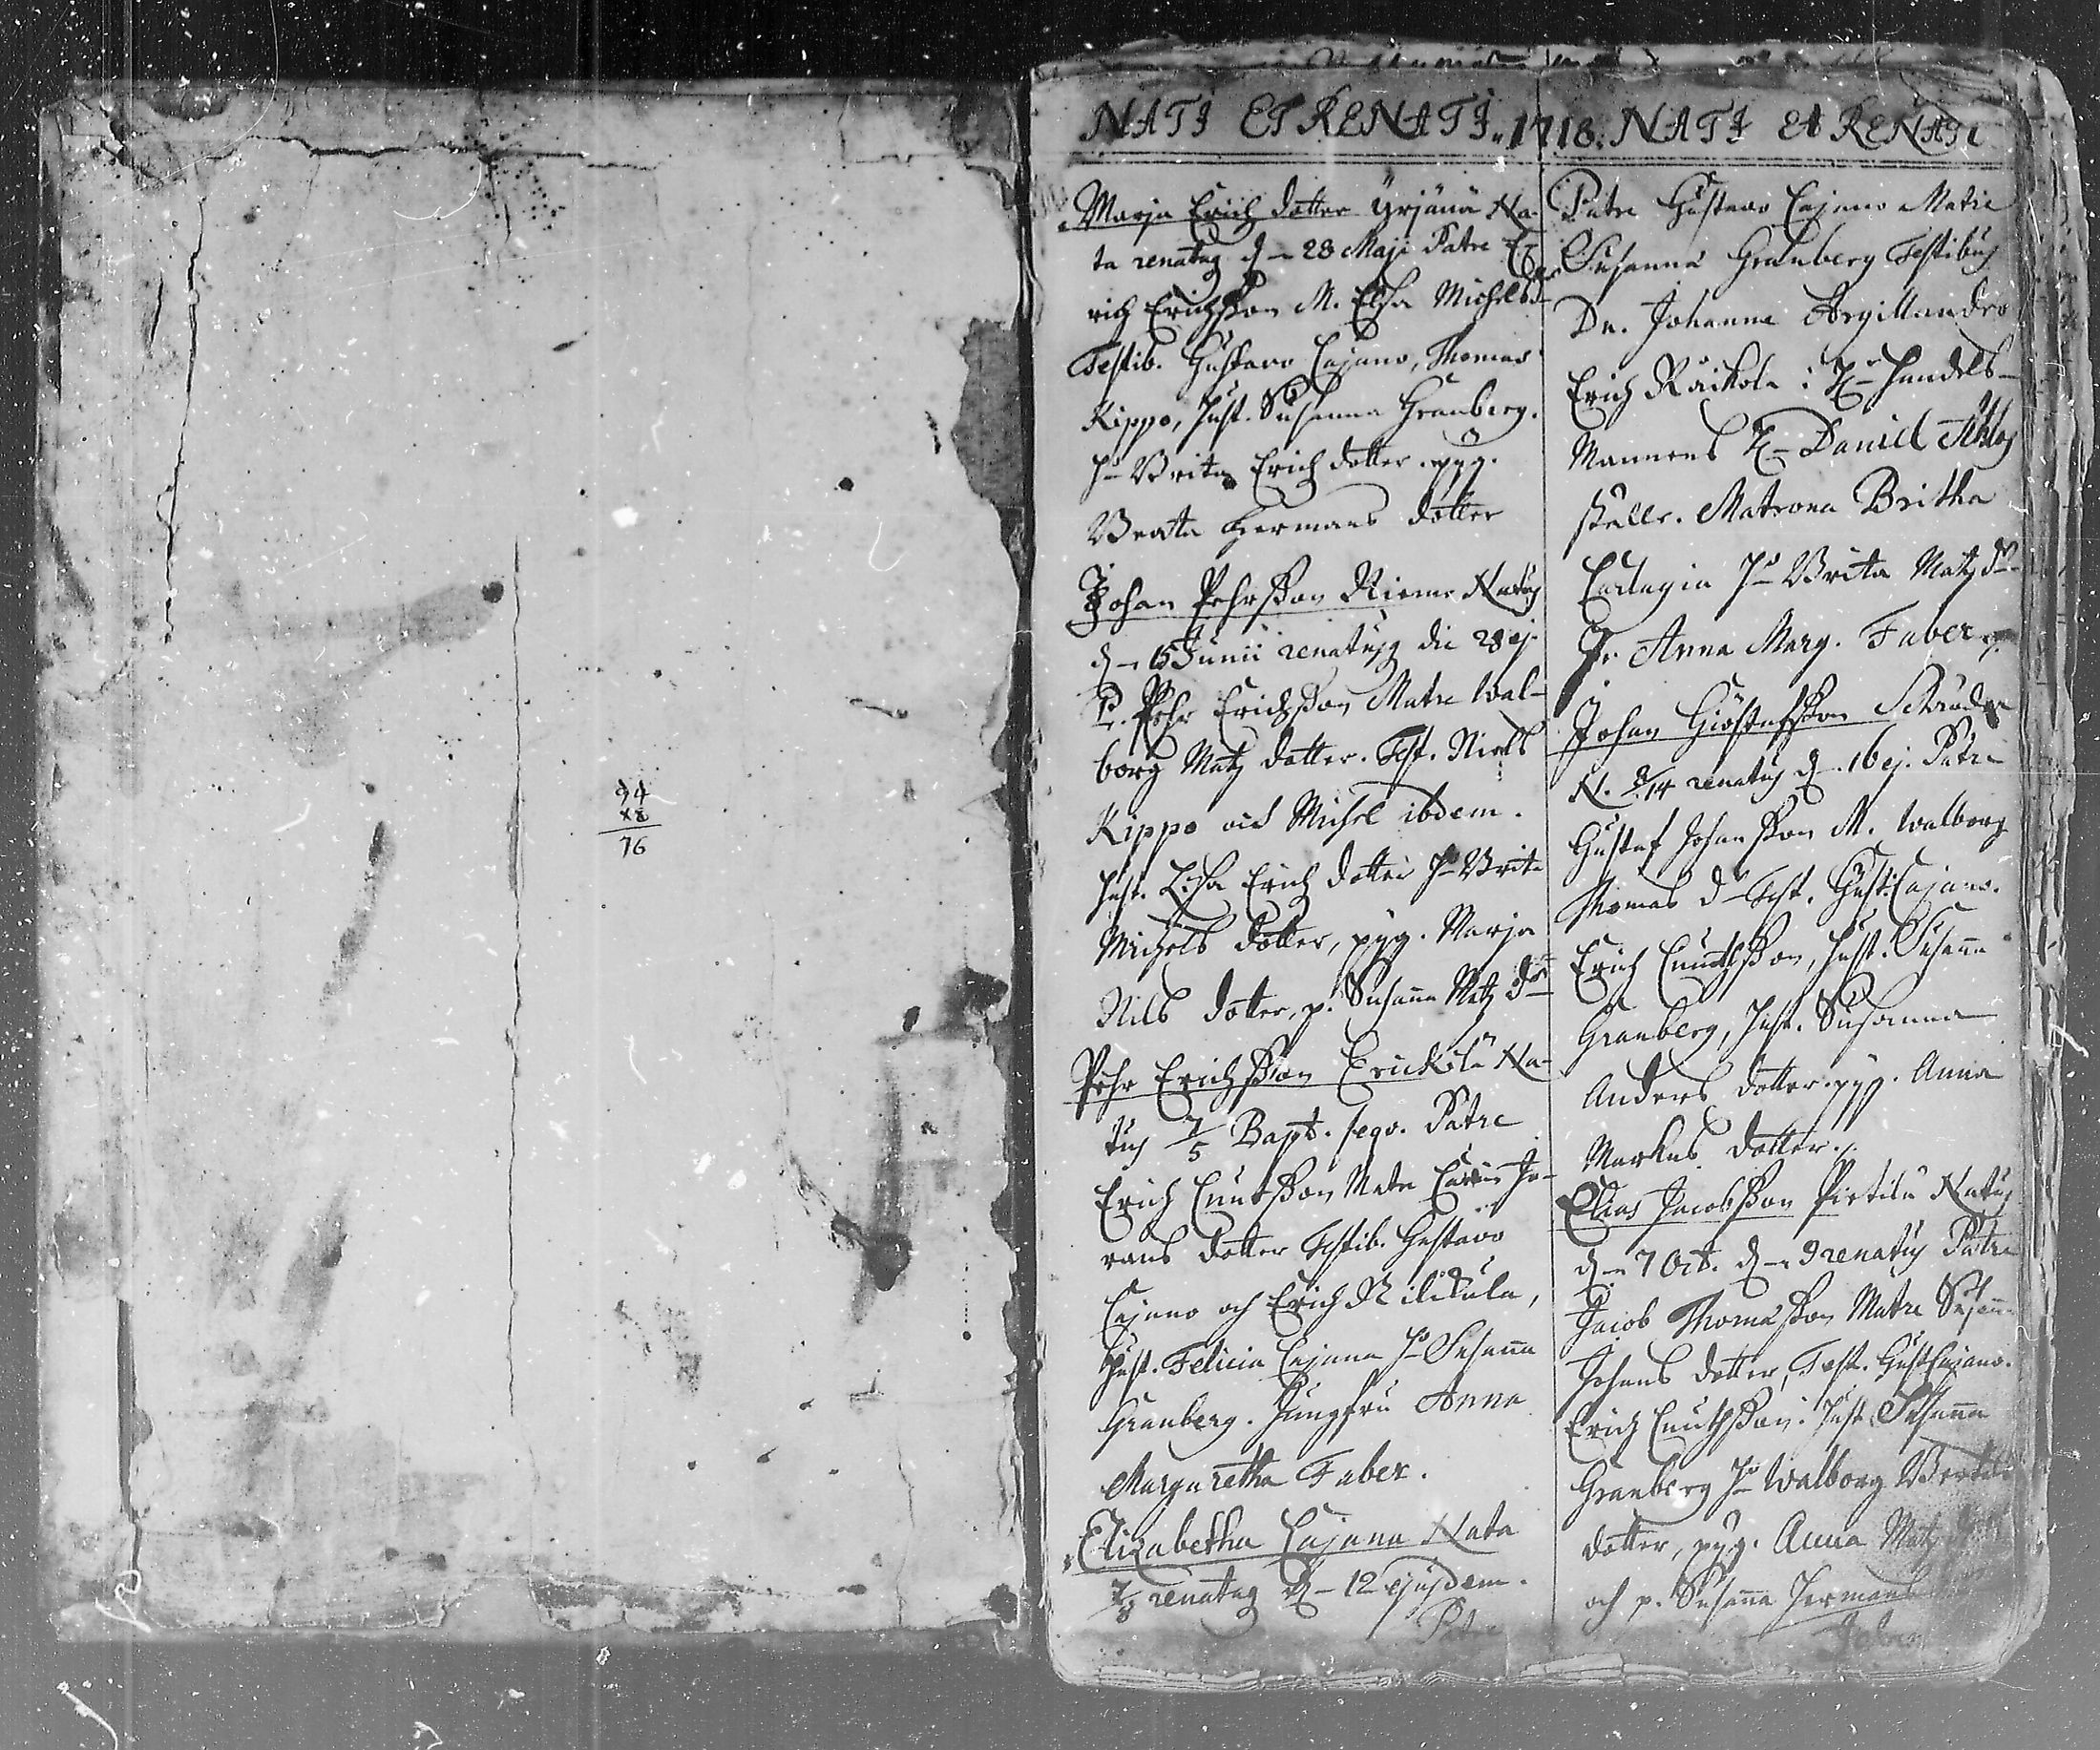 94
x8
76
NATI ET RENATI 1718. NATI ET RENATI
Marja Erich dotter Yrjänä Na-
ta renataq d - 28 Maji Patre E-
rich Erichsson M. Elsa Michelsdr
Testib. Gustavo Cajano, Thomas
Kippo, Hust. Susanna Granberg.
H- Brita Erich dotter. pyg.
Beata Hermans dotter
Johan Pehrsson Riemo Natus
d - 15 Junii renatusq die 28 ej.
P. Pehr Erichsson Matre Wal-
borg Matz dotter. Test. Niels
Kippo och Michel ibdem.
Hust. Lisa Erich dotter H- Brita
Michels dotter, pyg. Marja
Nils dotter, p. Susanna Matz dr
Pehr Erichsson Erickilä Na-
tus 7/5 Bapt. seqv. Patre
Erich Cnutsson Matre Carin Jo-
rans dotter Testib. Gustavo
Cajano och Erich
Hust. Felicia Cajana H- Susanna
Granberg. Jungfru Anna
Margaretha Faber.
Elizabetha Cajana Nata
7/8 renataq d - 12 ejusdem.
Patre
Patre Gustavo Cajano Matre
Susanna Granberg Testibus
Dn. Johanne Argillandro
Erich Räikölä: H- Handels-
Mannens H- Daniel
Matrona Britha
H- Brita Matz dr
Jr Anna Marg. Faber
Johan Giöstafsson Schröder
N. 8/14 renatus d. 16 ej. Patre
Gustaf Johansson M. Walborg
Thomas dr Test. Gust. Cajano.
Erich Cnuthsson, Hust. Susanna
Granberg, Hust. Susanna
Anders dotter. pyg. Anna
Markus dotter.
Elias Jacobsson Pirtilä Natus
d - 7 Oct. d - 9 renatus Patre
Jacob Thomasson Matre Susanna
Johans dotter, Test. Gust Cajano.
Erich Cnuthsson. Hust. Susanna
Granberg H- Walborg Bertils
dotter, pyg. Anna Matz
och p. Susanna Hermans